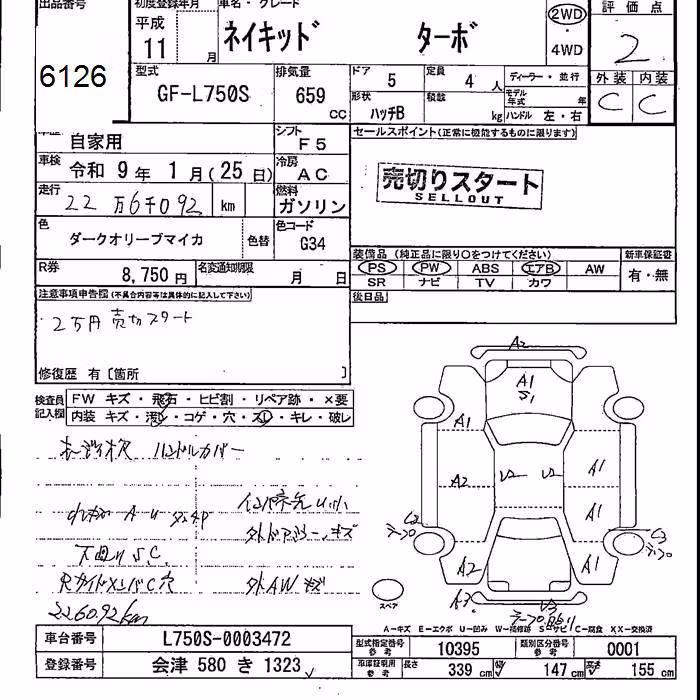 出品番号
6126
初度登録年月
平成
11 月
車名・グレード
ネイキッド ターボ
2WD
・
4WD
評価点
2
外装 内装
C C
型式
GF-L750S
排気量
659 CC
ドア 5
定員 4 人
形状 ハッチB
積載 kg
ディーラー・並行
モデル年式 年
ハンドル 左・右
車歴 自家用
シフト F5
車検 令和 9 年 1 月 ( 25 日)
冷房 AC
走行 22万6千092 km
燃料 ガソリン
色 ダークオリーブマイカ 色替
色コード G34
R券 8,750 円
名変通知期限 月 日
セールスポイント(正常に機能するものに限ります)
売切りスタート
SELLOUT
装備品 (純正品に限り○をつけてください)
新車保証書
PS PW ABS エアB AW
有・無
SR ナビ TV カワ
後日品
注意事項申告欄 (不具合内容等は具体的に記入して下さい)
2万円 売切スタート
修復歴 有 [箇所 ]
検査員記入欄
FW キズ・飛石・ヒビ割・リペア跡・×要
内装 キズ・汚レ・コゲ・穴・スレ・キレ・破レ
ハンドルカバー
下廻りS.C.
外AWキズ
226092km
A2
A1
S1
A1
A2
A1
A1
A1
A2
C2
C3
A3
スペア
A-キズ E-エクボ U-凹み W-補修跡 S-サビ C-腐食 XX-交換済
車台番号 L750S-0003472
登録番号 会津 580 き 1323
型式指定番号 参考 10395
類別区分番号 参考 0001
車庫証明用 参考 長さ 339 cm 幅 147 cm 高さ 155 cm